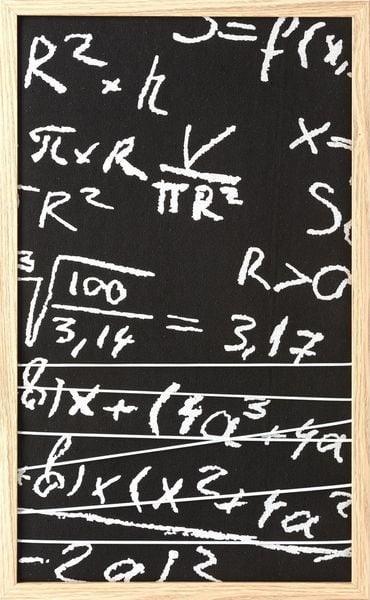 S = f(x,
R² × h
π × R V/πR² x =
R² S
R > 0
³√100/3,14 = 3,17
b) x + (4a³ + 4a
b) x (x² + 4a²
- 2a)²